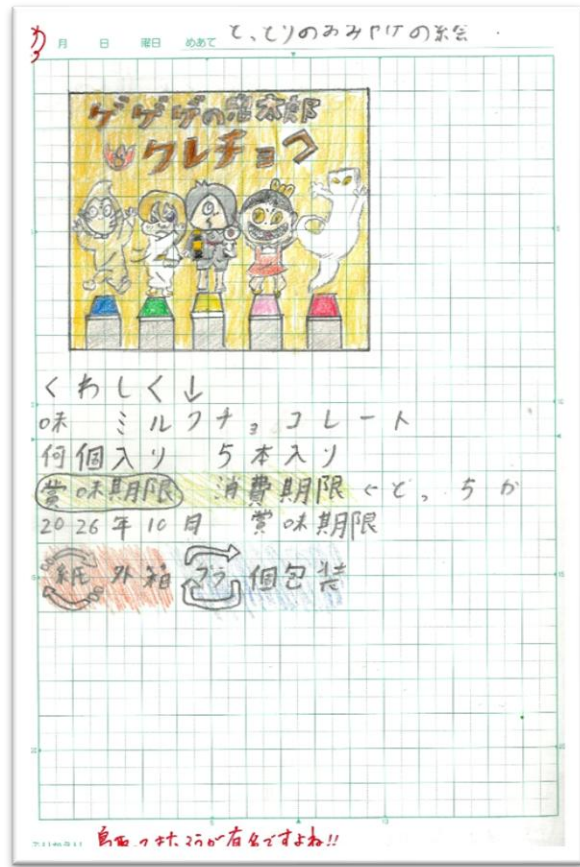 月 日 曜日 めあて とっとりのおみやげの絵
ゲゲゲの鬼太郎
クレチョコ
くわしく↓
味 ミルクチョコレート
何個入り 5本入り
賞味期限 消費期限←どっちか
2026年10月 賞味期限
紙 外箱 プラ 個包装
鳥取って が有名ですよね!!